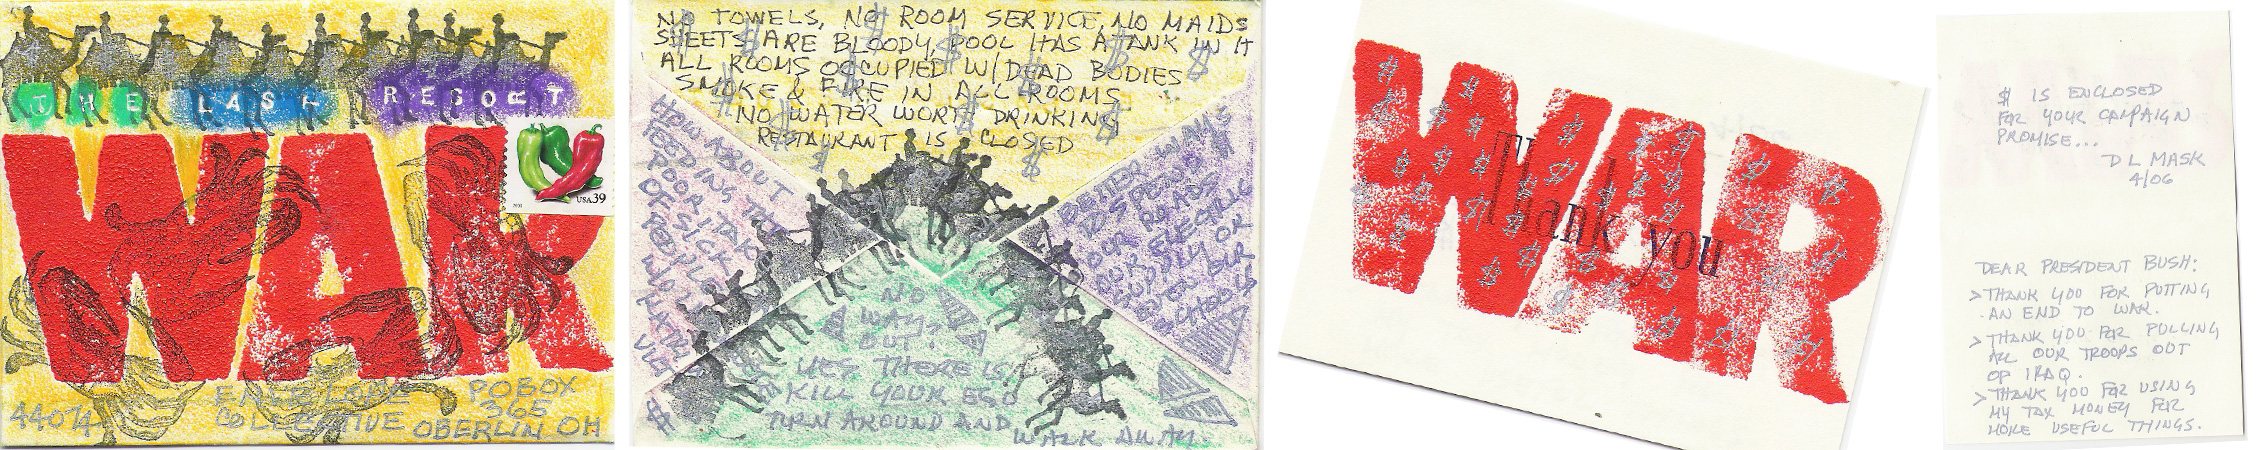 THE LAST RESORT
WAR
USA 39
ENVELOPE
COLLECTIVE
PO BOX
365
OBERLIN OH
44074
NO TOWELS, NO ROOM SERVICE, NO MAIDS
SHEETS ARE BLOODY, POOL HAS A TANK IN IT
ALL ROOMS OCCUPIED W/DEAD BODIES
SMOKE & FIRE IN ALL ROOMS
NO WATER WORTH DRINKING
RESTAURANT IS CLOSED
HOW ABOUT
FEEDING THE
POOR TAKE
OF SICK
BETTER WAYS
TO SPEND
OUR ROADS
OUR ELECTRIC
SUPPLY OR
EVEN OUR
SCHOOLS
NO
WAY
OUT?
YES THERE IS!
KILL YOUR EGO
TURN AROUND AND
WALK AWAY.
WAR
Thank you
$ IS ENCLOSED
FOR YOUR CAMPAIGN
PROMISE...
D L MASK
4/06
DEAR PRESIDENT BUSH:
> THANK YOU FOR PUTTING
AN END TO WAR.
> THANK YOU FOR PULLING
ALL OUR TROOPS OUT
OF IRAQ.
> THANK YOU FOR USING
MY TAX MONEY FOR
MORE USEFUL THINGS.